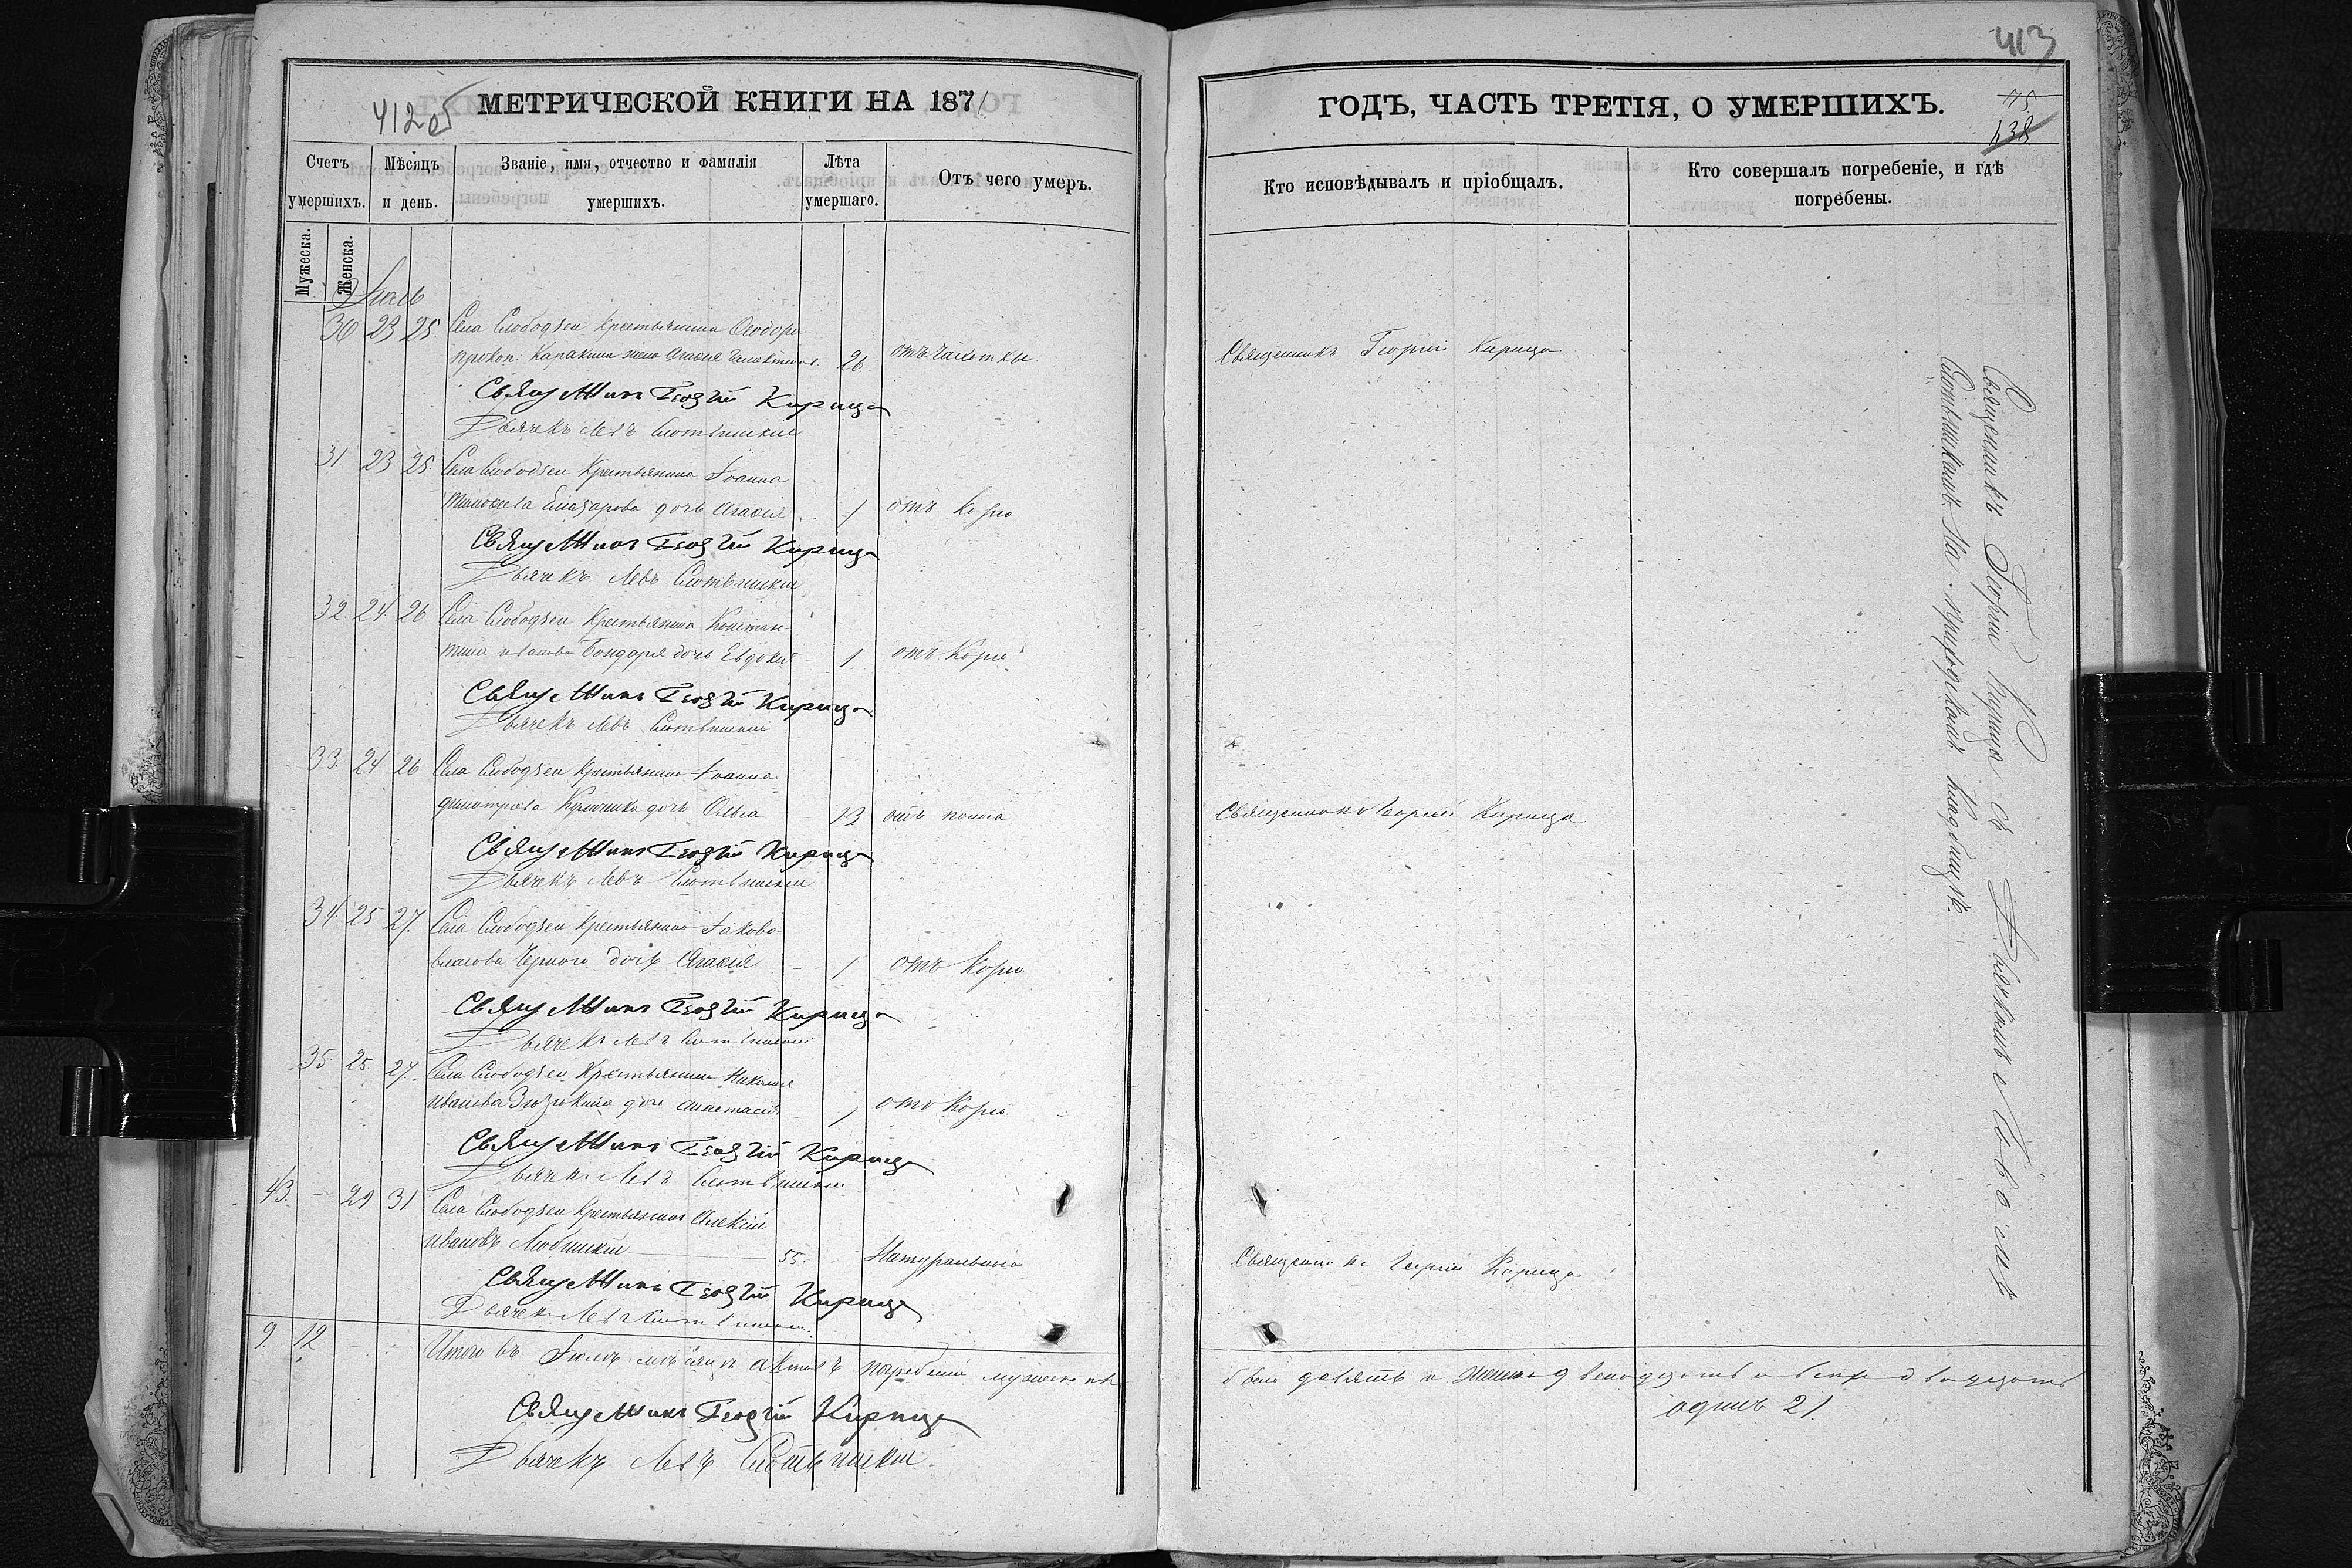 412 об
МЕТРИЧЕСКОЙ КНИГИ НА 1871
Счетъ умершихъ.
Мѣсяцъ и день.
Званіе, имя, отчество и фамилія умершихъ.
Лѣта умершаго.
Отъ чего умеръ.
Мужеска.
Женска.
Іюль
30 23 25 Села Слободзеи крестьянина Ѳеодора
прокоп. Каракаша жена Агаѳія 26 отъ чахотки
Священникъ Георгій Кирица
Дьячекъ Левъ
31 23 25 Села Слободзеи Крестьянина Іоанна
Тимоѳеева Елазарова дочь Агаѳія – 1 отъ Кори
Священникъ Георгій Кирица
Дьячекъ Левъ
32 24 26 Села Слободзеи Крестьянина Констан-
тина иванова Бондаря дочь Евдокія – 1 отъ Кори
Священникъ Георгій Кирица
Дьячекъ Левъ
33. 24 26 Села Слободзеи Крестьянина Іоанна
димитрова дочь Ольга – 13 отъ поноса
Священникъ Георгій Кирица
Дьячекъ Левъ
34 25 27. Села Слободзеи Крестьянина Іакова
власова Чернаго дочь Агаѳія – 1 отъ Кори
Священникъ Георгій Кирица
Дьячекъ Левъ
35 25 27. Села Слободзеи Крестьянина Николая
иванова дочь Анастасія 1 отъ Кори
Священникъ Георгій Кирица
Дьячекъ Левъ
43. – 29 31 Села Слободзеи Крестьянинъ Алексій
ивановъ 55. Натурально
Священникъ Георгій Кирица
Дьячекъ Левъ
9 12 Итого въ Іюлѣ мѣсяцѣ актовъ погребеній мужеска пл
Священникъ Георгій Кирица
Дьячекъ Левъ
413
ГОДЪ, ЧАСТЬ ТРЕТІЯ, О УМЕРШИХЪ.
75
438
Кто исповѣдывалъ и пріобщалъ.
Кто совершалъ погребеніе, и гдѣ погребены.
Священникъ Георгій Кирица
Священникъ Георгій Кирица
Священникъ Георгій Кирица
Священникъ Георгій Кирица съ Дьячкомъ Львомъ
на приходскомъ кладбищѣ.
было девять и женска двенадцать а всехъ двадцать
одинъ 21